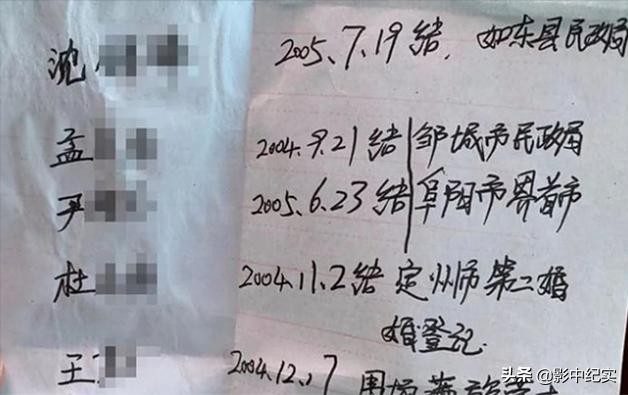 沈 2005.7.19结. 如东县民政局
孟 2004.9.21结 邹城市民政局
尹 2005.6.23结 阜阳市界首市
杜 2004.11.2结 定州市第二婚
婚登记.
王 2004.12.17 围场
头条 @影中纪实